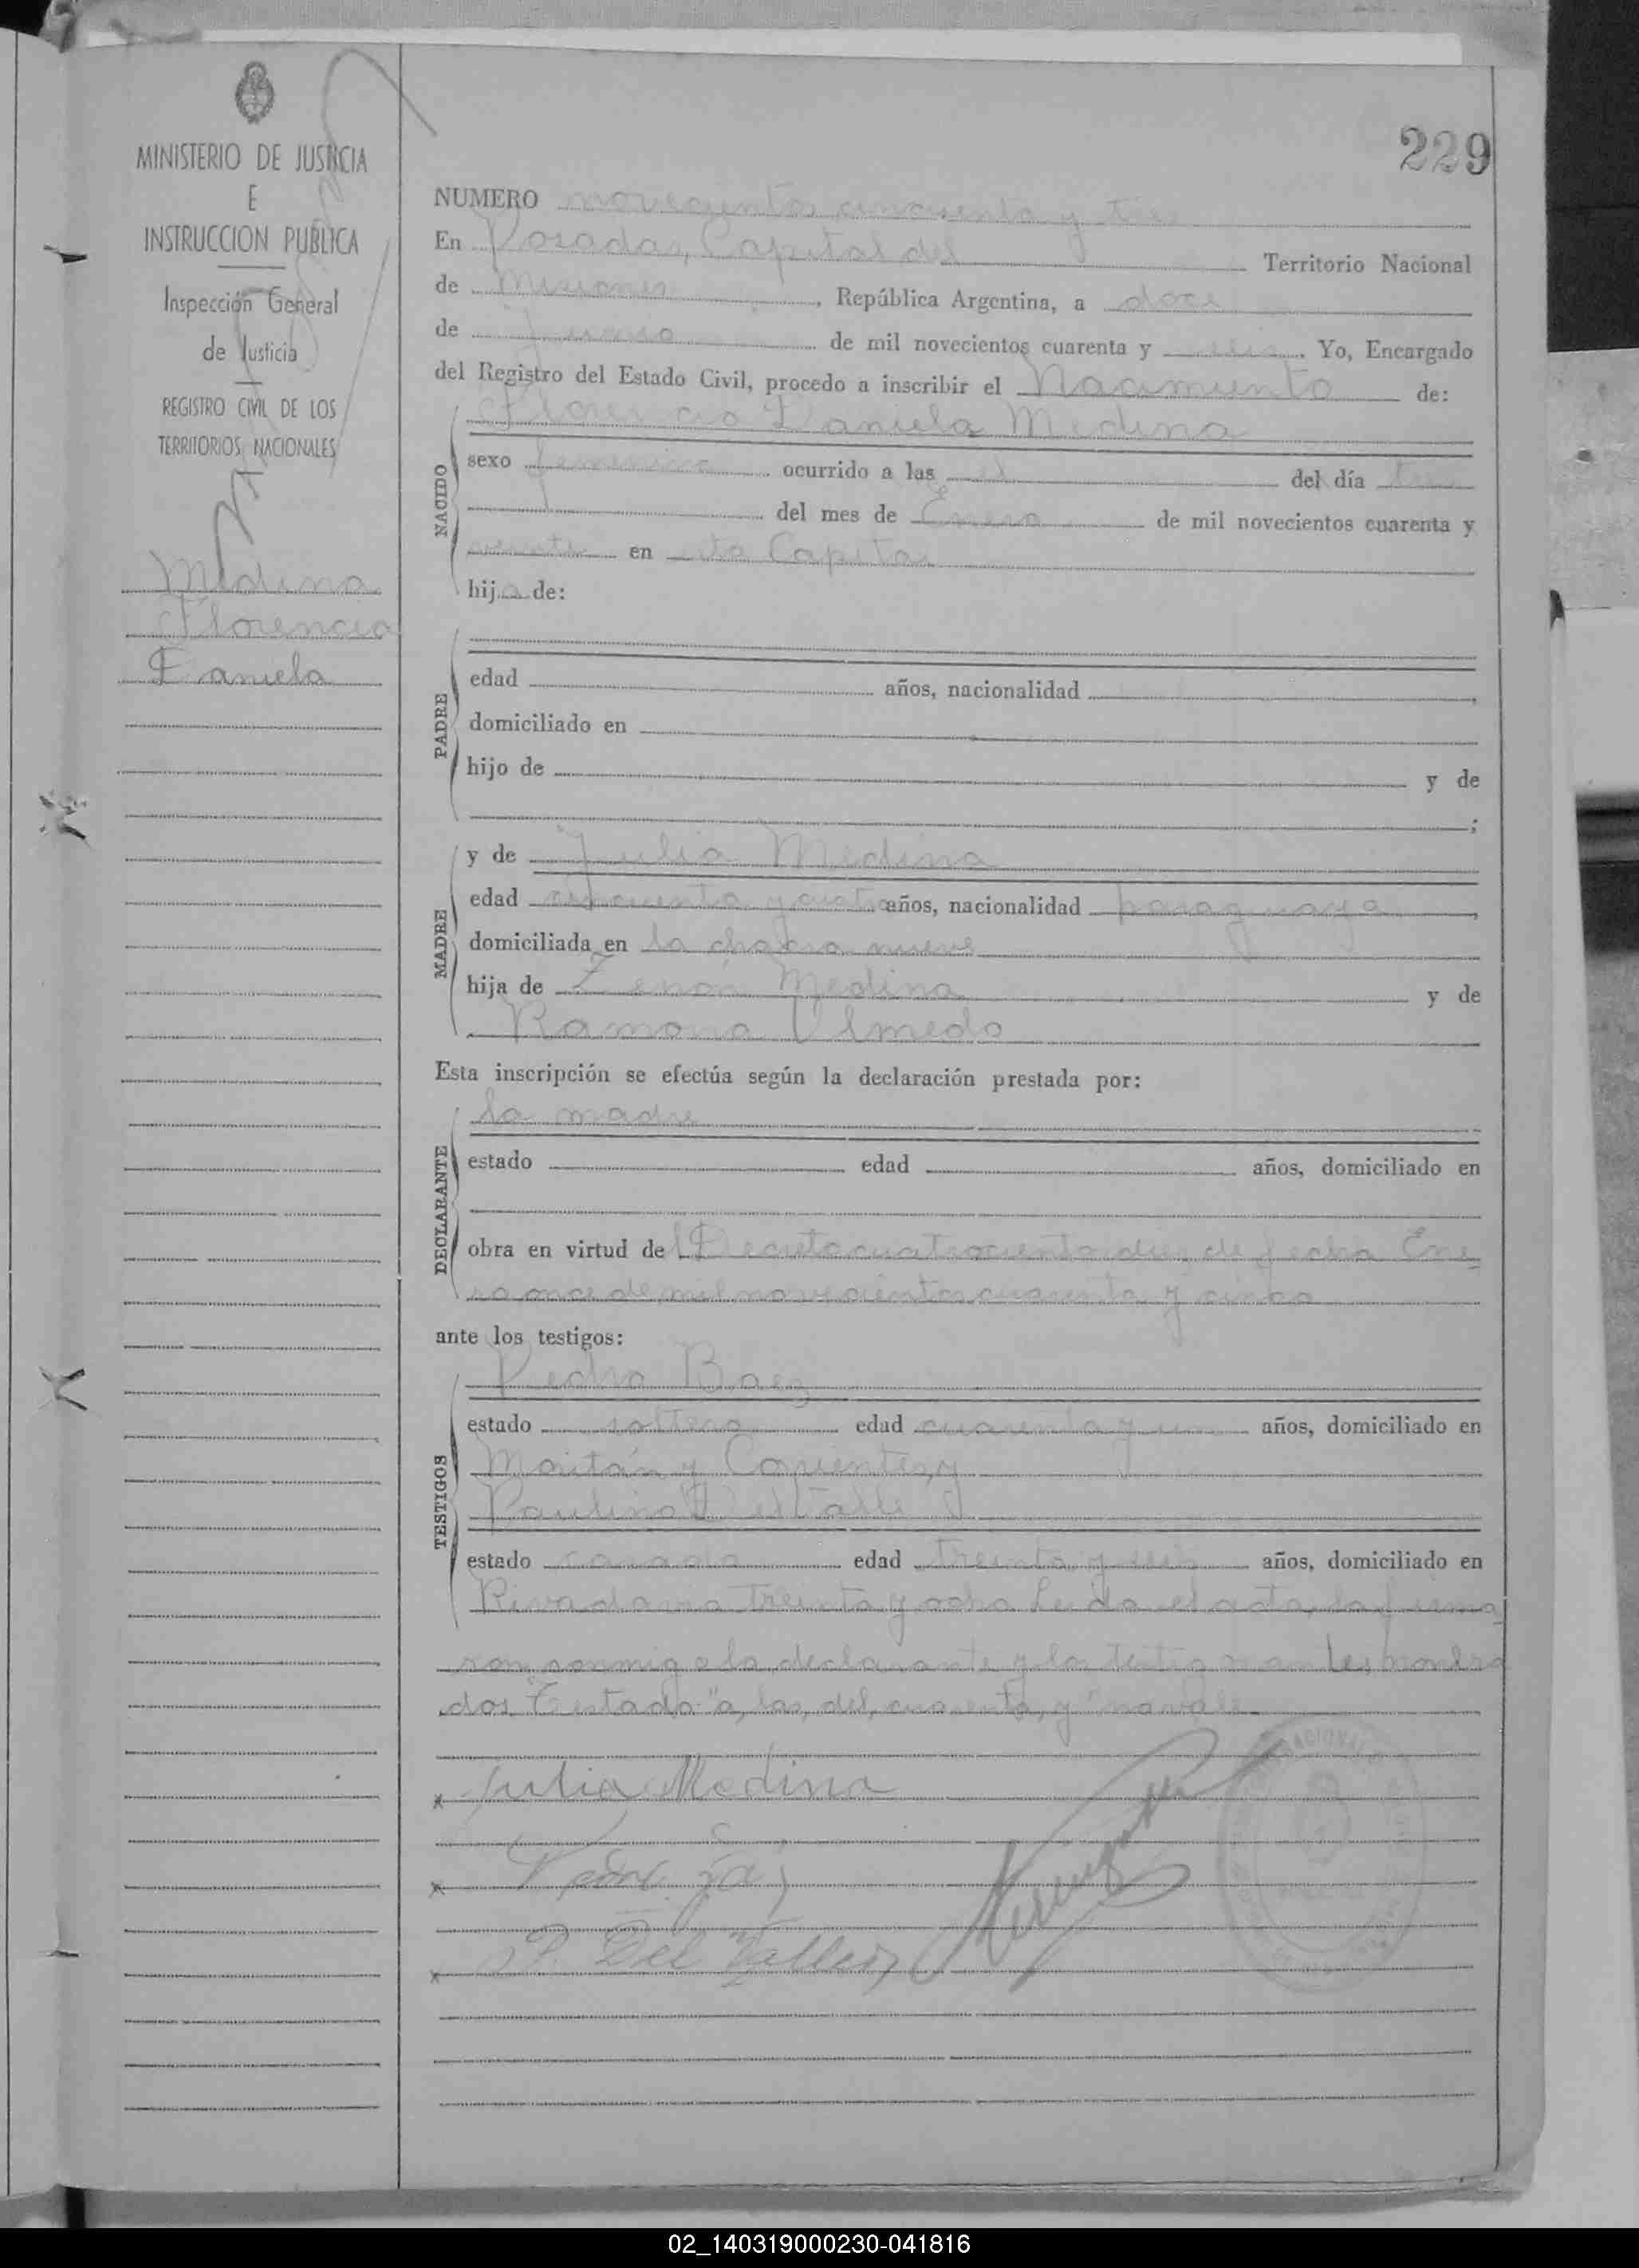 229
MINISTERIO DE JUSTICIA
E
INSTRUCCION PUBLICA
Inspección General
de Justicia
REGISTRO CIVIL DE LOS
TERRITORIOS NACIONALES
Medina
Florencia
Daniela
NUMERO novecientos cincuenta y tres
En Posadas, Capital del Territorio Nacional
de Misiones, República Argentina, a doce
de Junio de mil novecientos cuarenta y seis. Yo, Encargado
del Registro del Estado Civil, procedo a inscribir el Nacimiento de:
Florencia Daniela Medina
NACIDO
sexo femenino ocurrido a las el del día tres
del mes de Enero de mil novecientos cuarenta y
veinte en esta Capital
hija de:
PADRE
edad años, nacionalidad
domiciliado en
hijo de y de
;
MADRE
y de Julia Medina
edad cincuenta y cuatro años, nacionalidad paraguaya
domiciliada en la chacra nueve
hija de Zenón Medina y de
Ramona Olmedo
Esta inscripción se efectúa según la declaración prestada por:
DECLARANTE
la madre
estado edad años, domiciliado en
obra en virtud del Decreto cuatrocientos diez de fecha Ene
ro once de mil novecientos cuarenta y cinco
ante los testigos:
TESTIGOS
Pedro Baez
estado soltero edad cuarenta y un años, domiciliado en
y Corrientes, y
Paulino Del Valle
estado casado edad treinta y seis años, domiciliado en
Rivadavia treinta y ocho Leida el acta, la firma
ron conmigo la declarante y los testigos nombra
dos. Testado: "a, las, del, cuarenta, y" no vale
x Julia Medina
x
x P. Del Valle
02_140319000230-041816